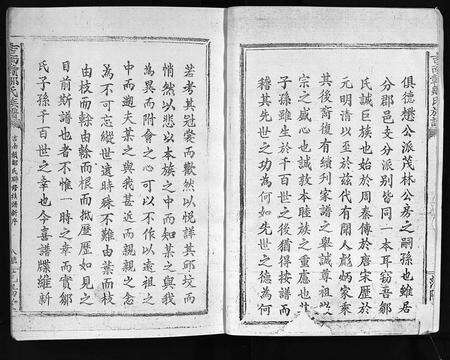 俱德懋公派茂林公房之嗣孫也雖居
分郡邑支分派別皆同一本耳窃吾鄒
氏誠巨族也始於周秦傳於唐宋歷於
元明清以至於茲代有聞人彪炳家乘
其後裔復有續列家譜之舉誠尊祖敬
宗之盛心也誠敦本睦族之重慮也其
子孫雖生於千百世之後猶得按譜而
稽其先世之功為何如先世之德為何
若考其冠裳而歡然以悅詳其邱坟而
悄然以悲以本族之中而知某之與我
為異而附會之心可以不作以遠祖之
中而適夫某之與我甚近而親親之念
為不可忘縱世遠時殊不難由葉而枝
由枝而榦由榦而根而抵歷歷如見之
目前斯譜也者不惟一時之幸而實鄒
氏子孫千百世之幸也今喜譜牒維新